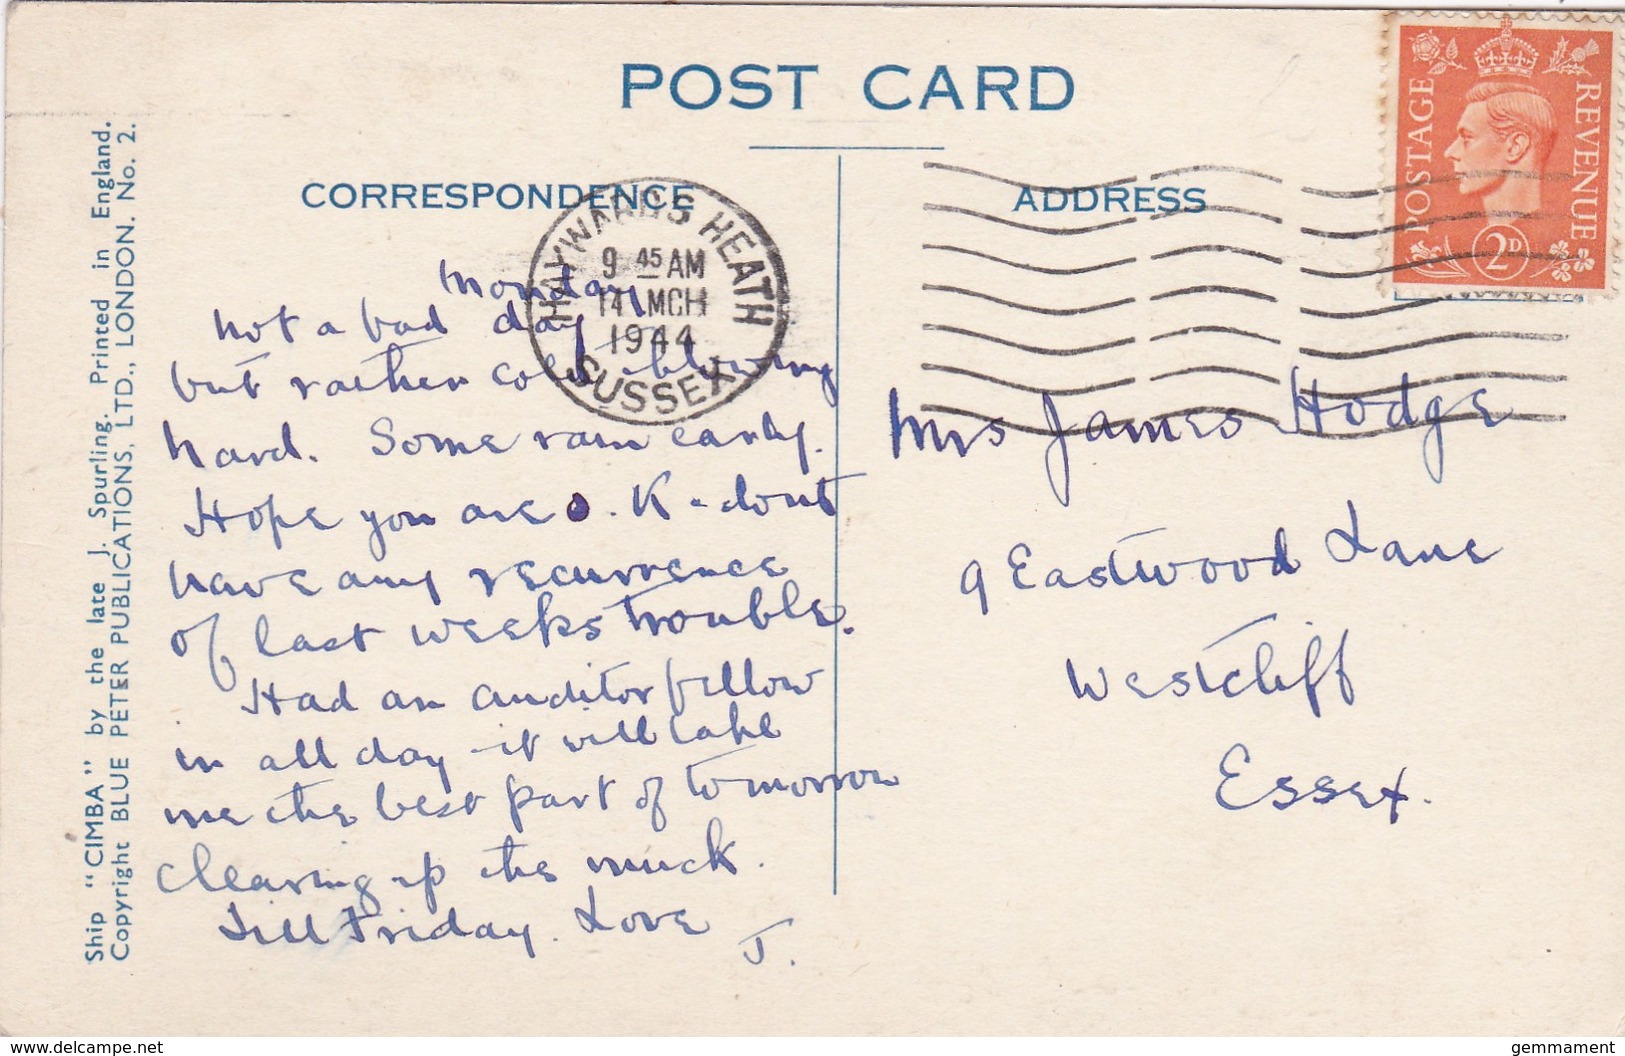 POST CARD
CORRESPONDENCE
ADDRESS
POSTAGE
REVENUE
2D
HAYWARDS HEATH
9 45 AM
14 MCH
1944
SUSSEX
Monday
Not a bad day
but rather cold & blowing
hard. Some rain early.
Hope you are O.K - dont
have any recurrence
of last weeks trouble.
Had an auditor fellow
in all day - it will take
me the best part of tomorrow
clearing up the muck.
Till Friday. Love
J.
Mrs James Hodge
9 Eastwood Lane
Westcliff
Essex.
Ship "CIMBA" by the late J. Spurling. Printed in England.
Copyright BLUE PETER PUBLICATIONS, LTD., LONDON. No. 2.
www.delcampe.net
gemmament